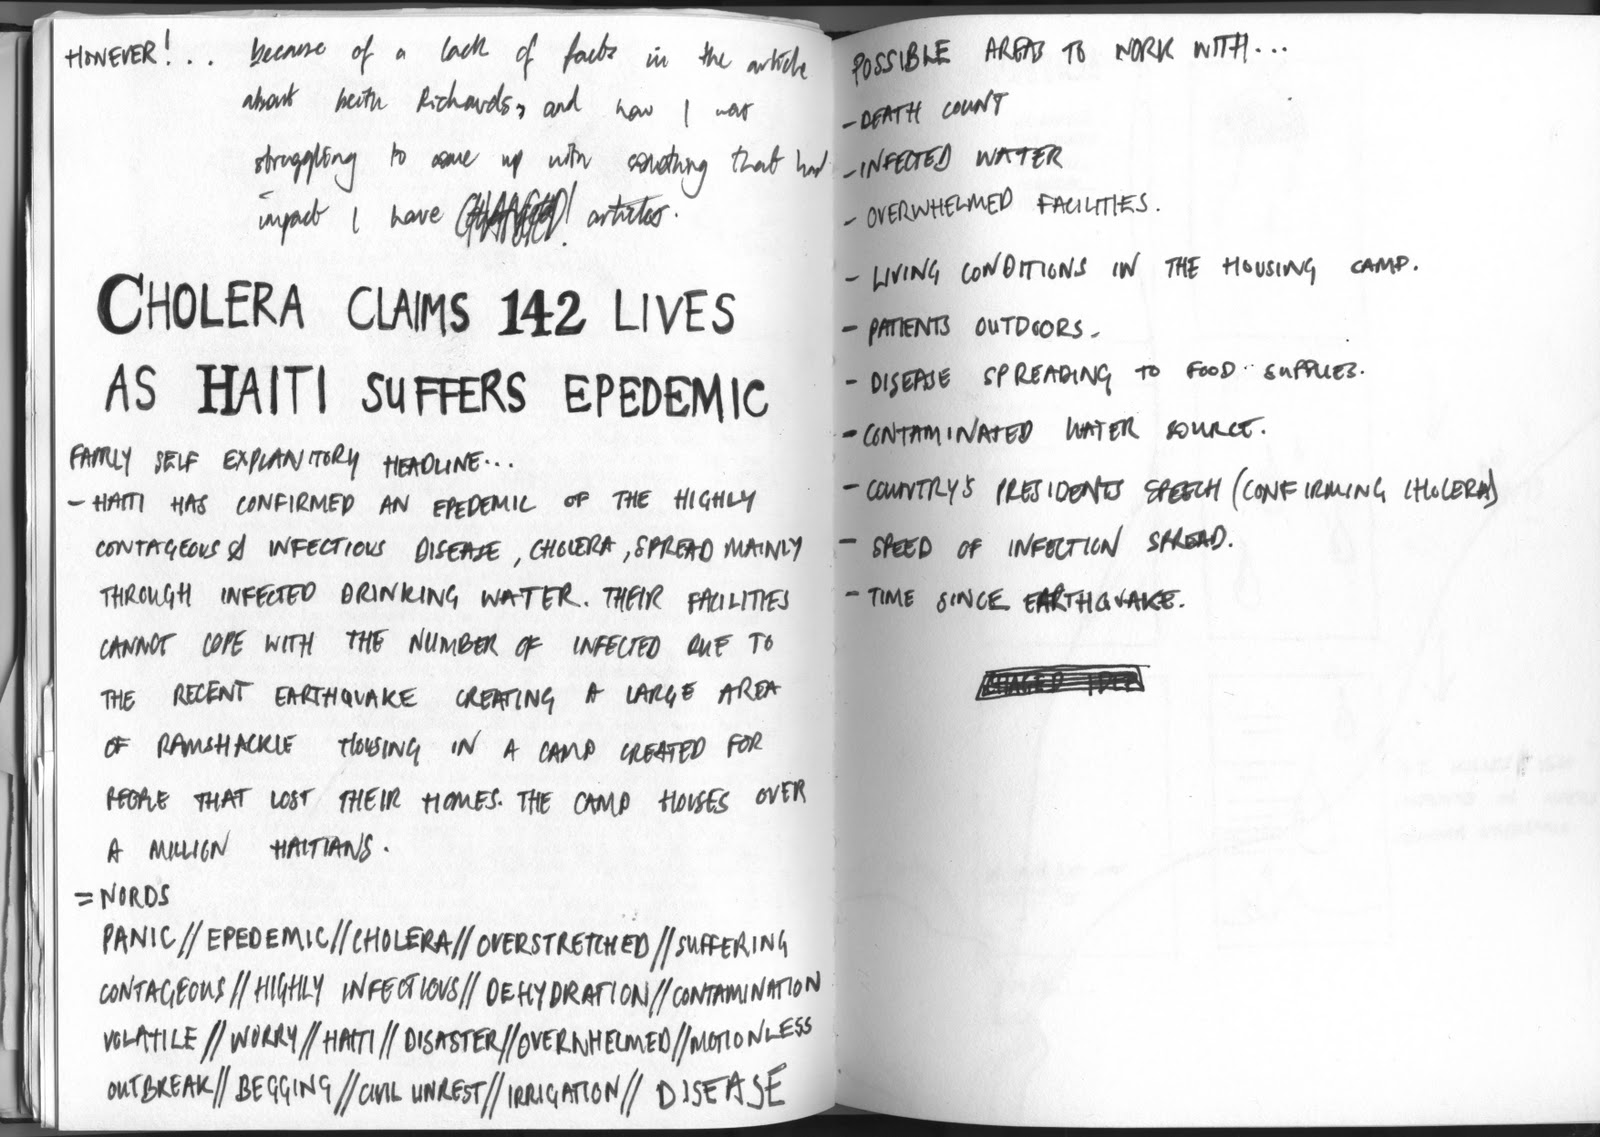 HOWEVER!... because of a lack of facts in the article
about keith Richards, and how I was
struggling to come up with something that had
impact I have CHANGED! articles.
CHOLERA CLAIMS 142 LIVES
AS HAITI SUFFERS EPEDEMIC
FAIRLY SELF EXPLANITORY HEADLINE...
- HAITI HAS CONFIRMED AN EPEDEMIC OF THE HIGHLY
CONTAGEOUS & INFECTIOUS DISEASE, CHOLERA, SPREAD MAINLY
THROUGH INFECTED DRINKING WATER. THEIR FACILITIES
CANNOT COPE WITH THE NUMBER OF INFECTED DUE TO
THE RECENT EARTHQUAKE CREATING A LARGE AREA
OF RAMSHACKLE HOUSING IN A CAMP CREATED FOR
PEOPLE THAT LOST THEIR HOMES. THE CAMP HOUSES OVER
A MILLION HAITIANS.
= WORDS
PANIC//EPEDEMIC//CHOLERA//OVERSTRETCHED//SUFFERING
CONTAGEOUS//HIGHLY INFECTIOUS//DEHYDRATION//CONTAMINATION
VOLATILE//WORRY//HAITI//DISASTER//OVERWHELMED//MOTIONLESS
OUTBREAK//BEGGING//CIVIL UNREST//IRRIGATION//DISEASE
POSSIBLE AREAS TO WORK WITH...
- DEATH COUNT
- INFECTED WATER
- OVERWHELMED FACILITIES.
- LIVING CONDITIONS IN THE HOUSING CAMP.
- PATIENTS OUTDOORS.
- DISEASE SPREADING TO FOOD SUPPLIES.
- CONTAMINATED WATER SOURCE.
- COUNTRY'S PRESIDENTS SPEECH (CONFIRMING CHOLERA)
- SPEED OF INFECTION SPREAD.
- TIME SINCE EARTHQUAKE.